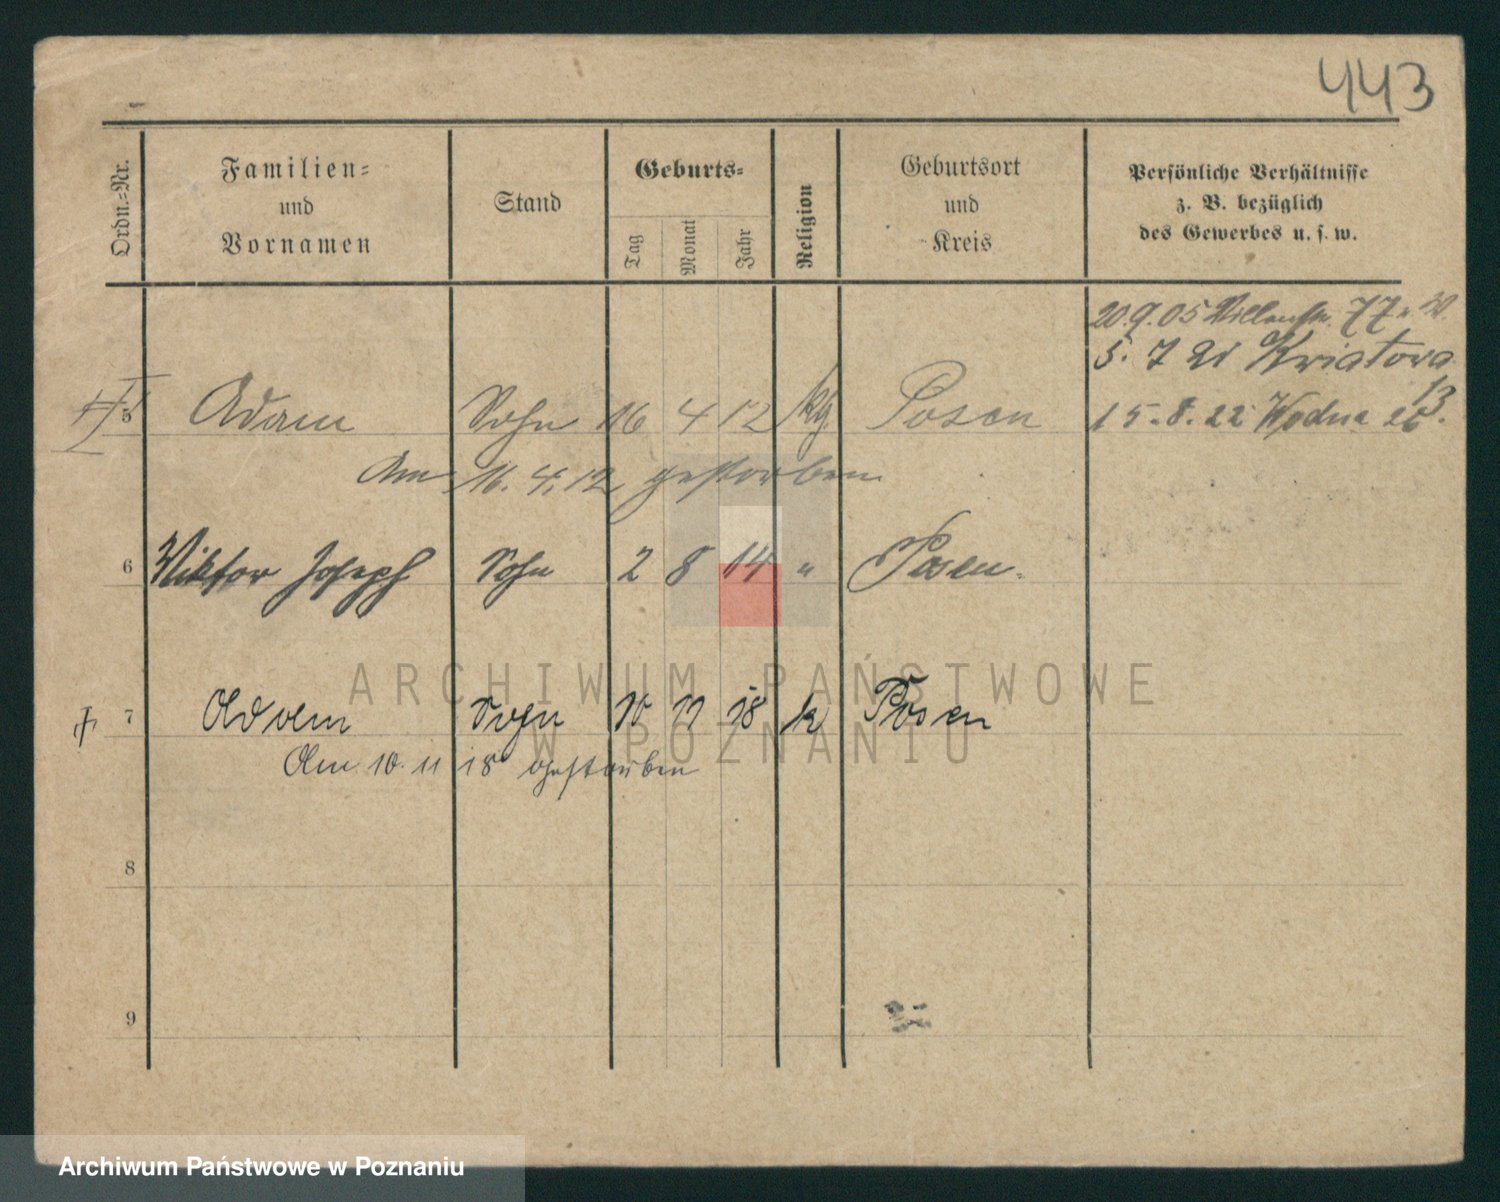 443
Ordn.-Nr.
Familien-
und
Vornamen
Stand
Geburts-
Tag
Monat
Jahr
Religion
Geburtsort
und
Kreis
Persönliche Verhältnisse
z. B. bezüglich
des Gewerbes u. s. w.
20.9.05 77
5. 7 21 Kwiatowa
13
5 Adam Sohn 16 4 12 Posen 15.8.22 Wodna 26.
Am 16. 4. 12 gestorben
6 Viktor Joseph Sohn 2 8 14 " Posen.
ARCHIWUM PAŃSTWOWE
W POZNANIU
7 Adam Sohn 10 11 18 k Posen
Am 10. 11 18 gestorben
8
9
Archiwum Państwowe w Poznaniu